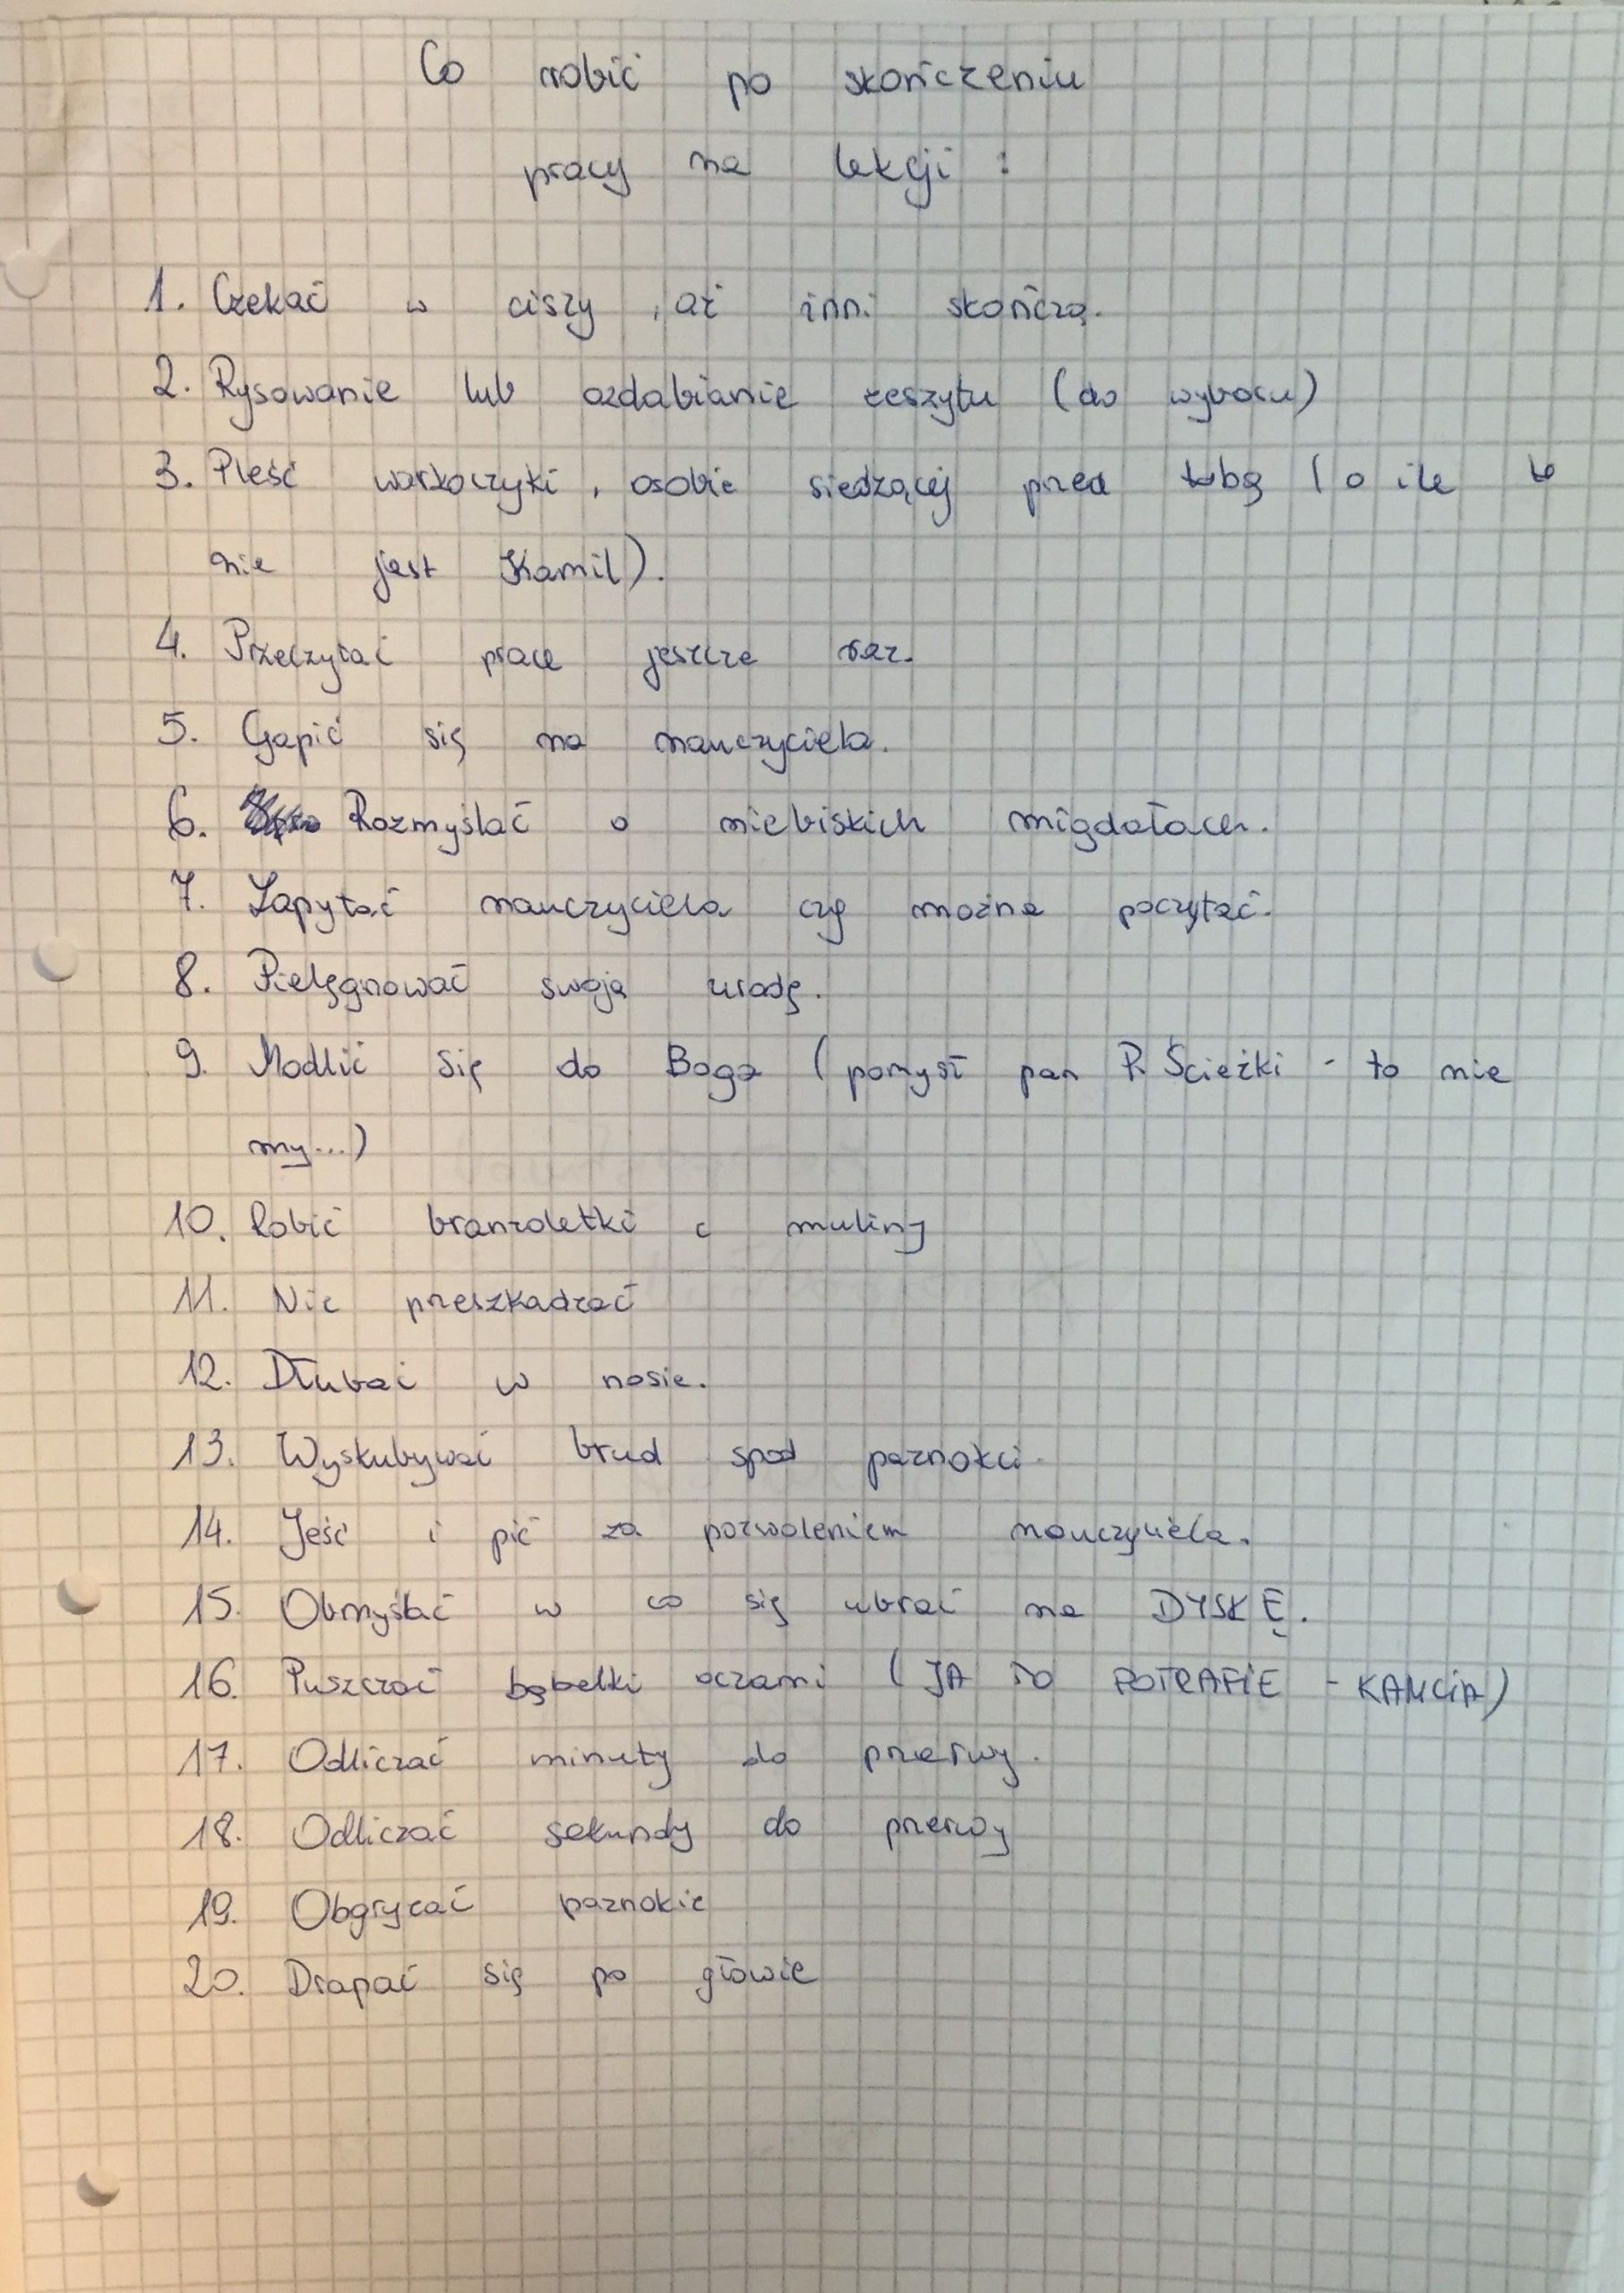 Co robić po skończeniu
pracy na lekcji :
1. Czekać w ciszy , aż inni skończą.
2. Rysowanie lub ozdabianie zeszytu (do wyboru)
3. Pleść warkoczyki , osobie siedzącej przed tobą ( o ile to
nie jest Kamil).
4. Przeczytać prace jeszcze raz.
5. Gapić się na nauczyciela.
6. Rozmyślać o niebiskich migdałach.
7. Zapytać nauczyciela czy można poczytać.
8. Pielęgnować swoją urodę.
9. Modlić się do Boga (pomysł pan P. Ścieżki - to nie
my...)
10. Robić branzoletki z muliny
11. Nie przeszkadzać
12. Dłubać w nosie.
13. Wyskubywać brud spod paznokci.
14. Jeść i pić za pozwoleniem nauczyciela.
15. Obmyślać w co się ubrać na DYSKĘ.
16. Puszczać bąbelki oczami (JA TO POTRAFIE - KAMCIA)
17. Odliczać minuty do przerwy.
18. Odliczać sekundy do przerwy
19. Obgryzać paznokie
20. Drapać się po głowie